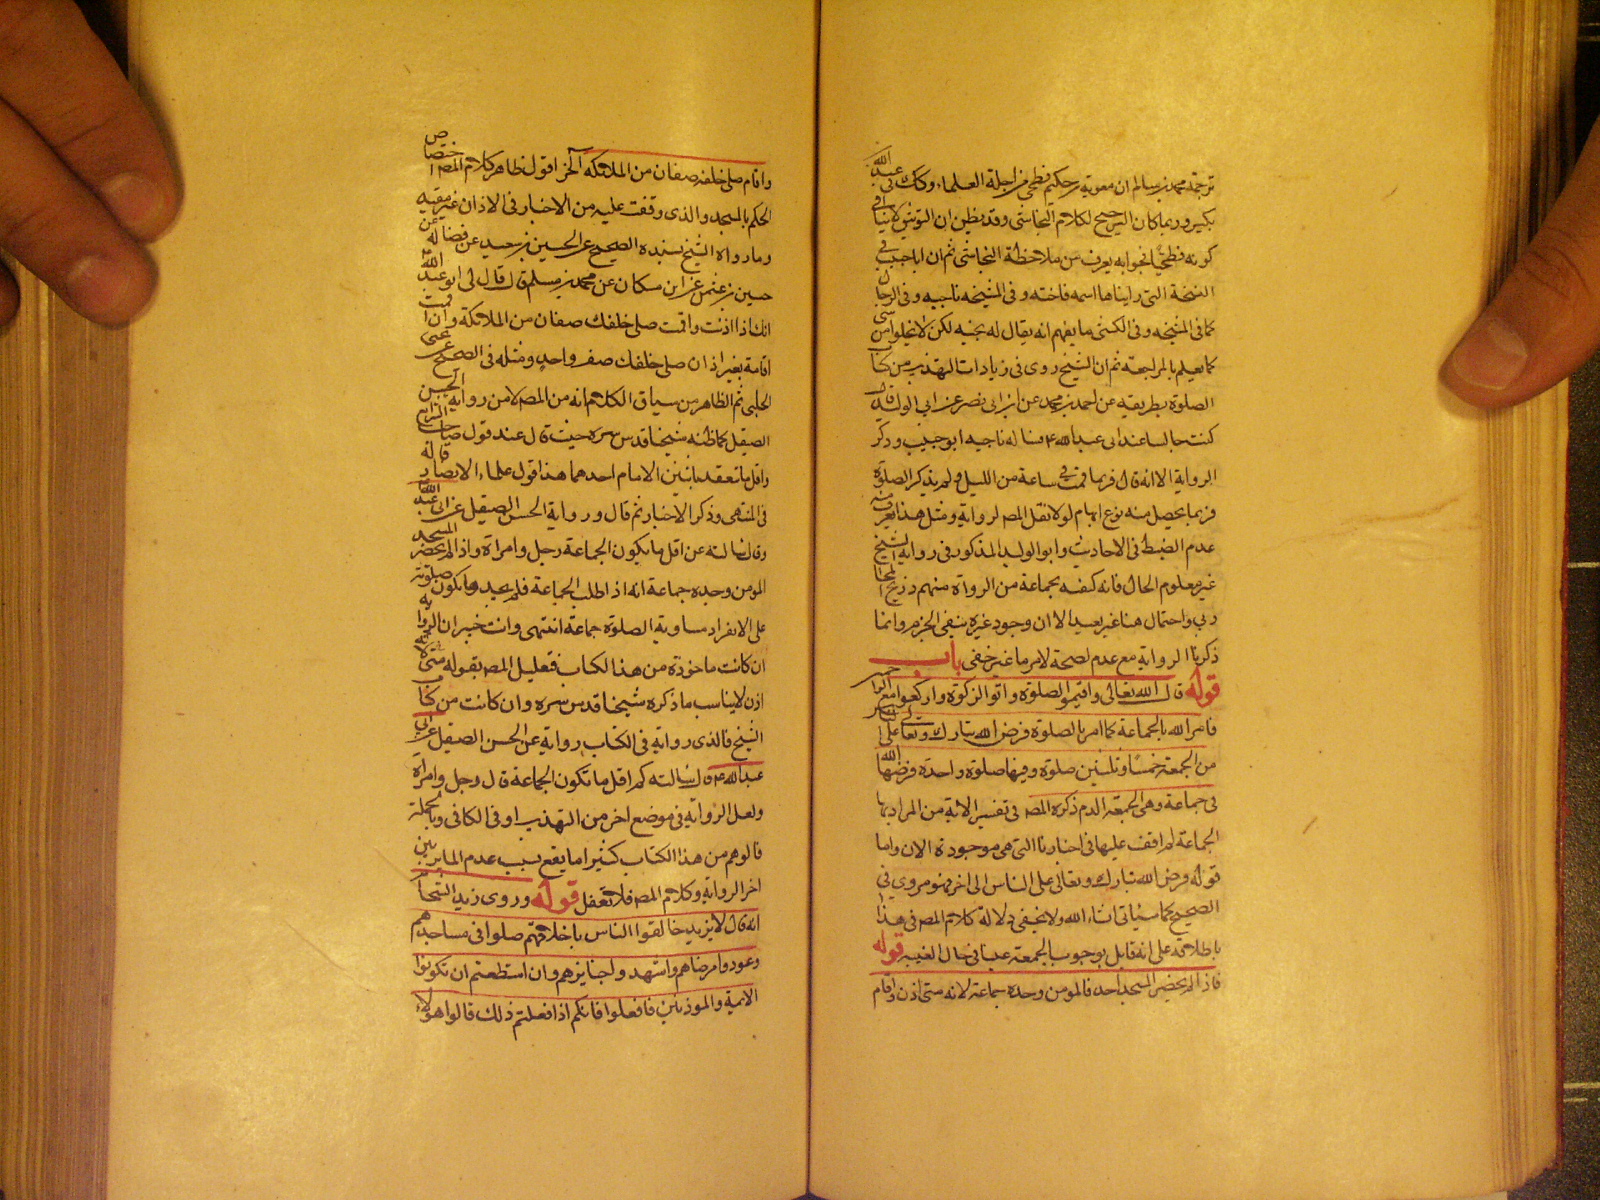 ترجمة محمد بن سالم ان معوية بن حكيم فطحي من اجلة العلماء وكك في عبد الله
بكير وربما كان الترجيح لكلام النجاشي وقد يظن ان التوثيق لا ينافي
كونه فطحيا فجوابه يعرف من ملاحظة النجاشي ثم ان ابا حبيب في
النسخة التي رايناها اسمه فاخته وفي المشيخه ناجيه وفي الرجال
كما في المشيخه وفي الكشي ما يفهم انه يقال له نجيه لكن لا يخلوا من شي
كما يعلم بالمراجعة ثم ان الشيخ روى في زيادات التهذيب من كتاب
الصلوة بطريقه عن احمد بن محمد عن ابن ابي نصر عن ابي الوليد قال
كنت جالسا عند ابي عبد الله ع فساله ناجيه ابو حبيب وذكر
الرواية الا انه قال فربما قمت في ساعة من الليل ولم يذكر الصلوة
فربما يحصل منه نوع ابهام لولا نقل المصـ لرواية ومثل هذا يعرف منه
عدم الضبط في الاحاديث وابو الوليد المذكور في رواية الشيخ
غير معلوم الحال فانه كنية لجماعة من الرواة منهم ذريح المحا
ربي واحتمال هنا غير بعيد الا ان وجود غيره ينفى الجزم وانما
ذكرنا الرواية مع عدم الصحة لامر ما غير خفى باب
قوله قال الله تعالى واقيموا الصلوة واتوا الزكوة واركعوا مع الراكعين
فامر الله بالجماعة كما امر بالصلوة فرض الله تبارك وتعالى على الناس
من الجمعة خمسا وثلثين صلوة وفيها صلوة واحدة فرضها الله
في جماعة وهي الجمعة الذي ذكره المصـ في تفسير الاية من المراد بها
الجماعة لم اقف عليها في اخبارنا التي هي موجودة الان واما
قوله فرض الله تبارك وتعالى على الناس الى اخره فهو مروي في
الصحيح كما سياتي انشاء الله ولا يخفى دلالة كلام المصـ في هذا
باطلاقه على انه قايل بوجوب الجمعة عينا في حال الغيبه قوله
فاذا لم يحضر المسجد احد فالمومن وحده جماعة لانه متى اذن واقام
واقام صلى خلفه صفان من الملائكة الخ اقول ظاهر كلام المصـ اختصاص
الحكم بالمسجد والذي وقفت عليه من الاخبار في الاذان غير مقيد به
وما رواه الشيخ بسنده الصحيح عن الحسين بن سعيد عن فضاله عن
حسين بن عثمن عن ابن مسكان عن محمد بن مسلم قال قال لى ابو عبد الله ع
انك اذا اذنت واقمت صلى خلفك صفان من الملائكة وان اقمت
اقامة بغير اذان صلى خلفك صف واحد ومثله في الصحيح عن يحيى
الحلبي ثم الظاهر من سياق الكلام انه من المصـ لا من رواية الحسن
الصيقل كما ظنه شيخنا قدس سره حيث قال عند قول صاحب الشرايع
واقل ما تنعقد باثنين الامام احدهما هذا قول علماء الامصار قاله
في المنتهى وذكر الاخبار ثم قال ورواية الحسن الصيقل عن ابي عبد الله ع
وقال سالته عن اقل ما يكون الجماعة رجل وامراة واذا لم يحضر المسجد
المومن وحده جماعة انه اذا طلب الجماعة فلم يجد ها يكون صلوته
على الانفراد مساوية الصلوة جماعة انتهى وانت خبير ان الرواية
ان كانت ماخوذة من هذا الكتاب فتعليل المصـ بقوله لانه متى
اذن لا يناسب ما ذكره شيخنا قدس سره وان كانت من كتاب
الشيخ فالذى رواية في الكتاب رواية عن الحسن الصيقل عن ابي
عبد الله ع قال سالته كم اقل ما تكون الجماعة قال رجل وامراة
ولعل الرواية في موضع اخر من التهذيب او في الكافى وبالجملة
فالوهم من هذا الكتاب كثيرا ما يقع بسبب عدم المايز بين
اخر الرواية وكلام المصـ فلا تغفل قوله وروى زيد الشحام
انه قال لا يزيد خالقوا الناس باخلاقهم صلوا في مساجدهم
وعودوا مرضاهم واشهدوا جنايزهم وان استطعتم ان تكونوا
الايمة والموذنين فافعلوا فانكم اذا فعلتم ذلك قالوا هولاء